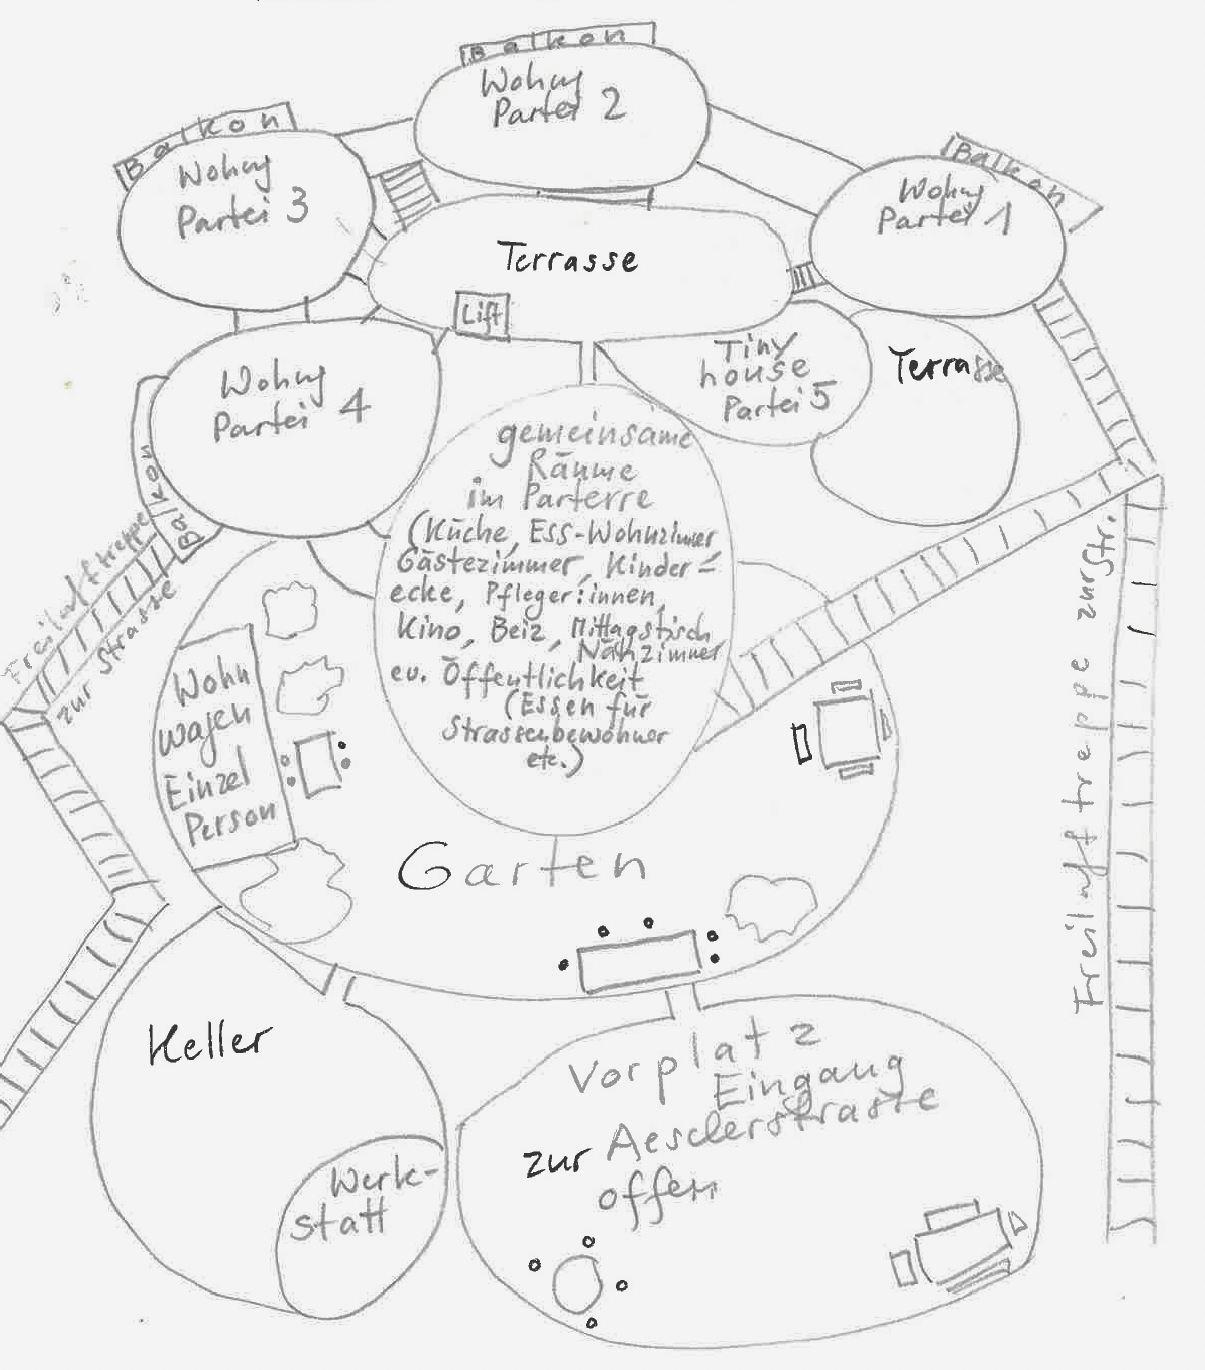 Balkon
Wohng
Partei 2
Balkon
Wohng
Partei 3
Balkon
Wohng
Partei 1
Terrasse
Lift
Tiny
house
Partei 5
Terrasse
Wohng
Partei 4
Balkon
gemeinsame
Räume
im Parterre
(Küche, Ess-Wohnzimmer
Gästezimmer, Kinder=
ecke, Pfleger:innen,
Kino, Beiz, Mittagstisch
Nähzimmer
ev. Öffentlichkeit
(Essen für
Strassenbewohner
etc.)
Freiluftreppe
zur Strasse
Freiluftreppe zur Str.
Wohn
wagen
Einzel
Person
Garten
Keller
Werk-
statt
Vorplatz
Eingang
zur Aesclerstrasse
offen